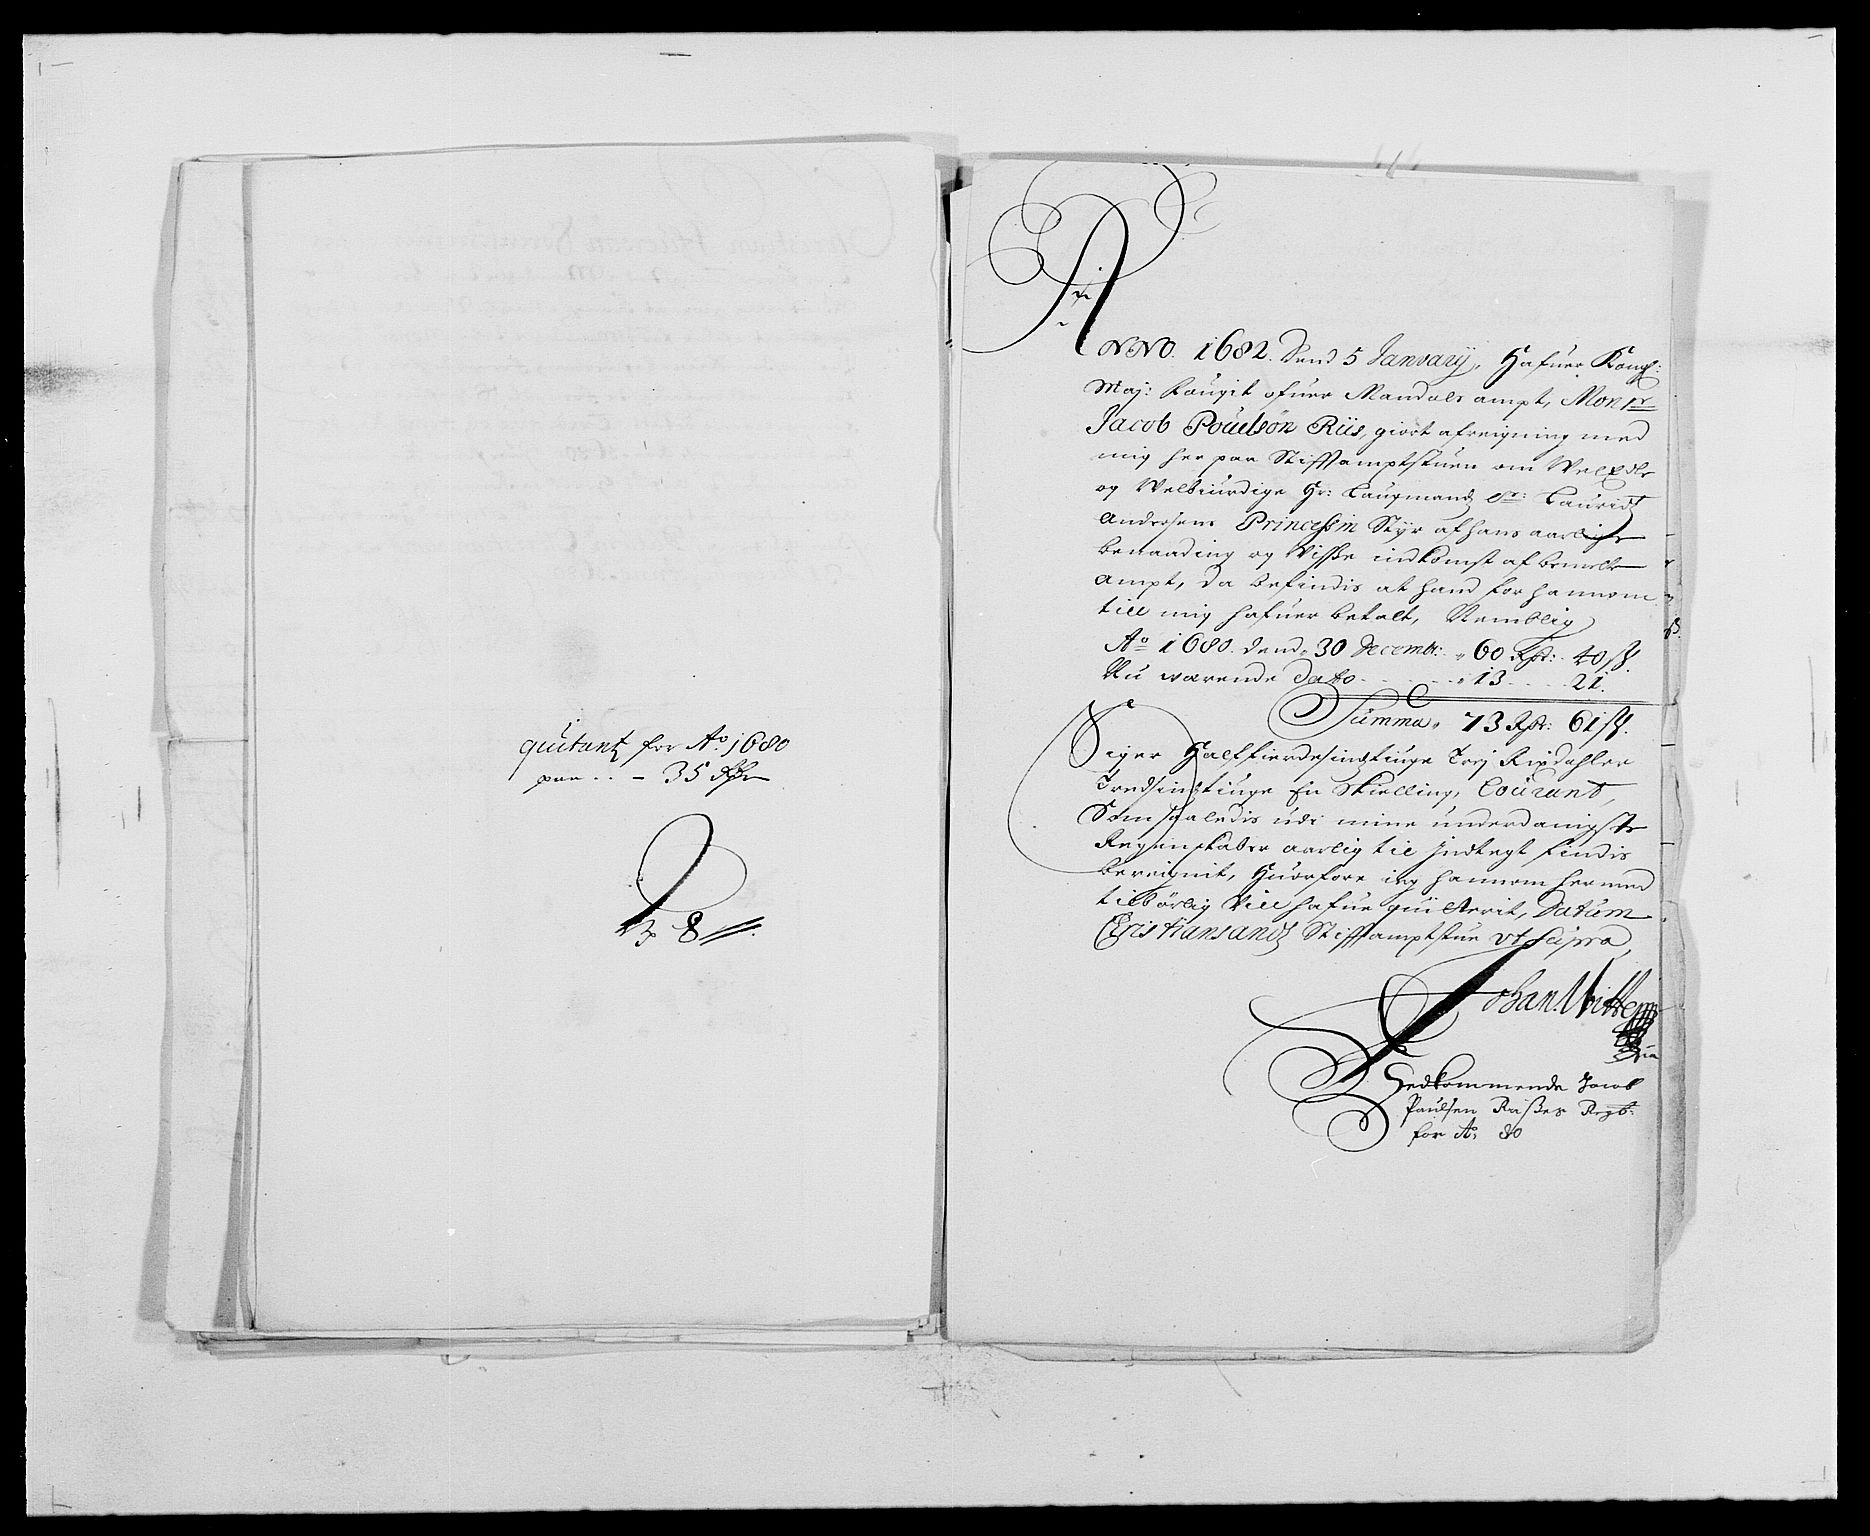 quitantz for Ao. 1680
paa . . – 35 Rdr
No 8
Anno 1682. Dend 5 Januarij, Hafuer Kongl:
Maj: Fougit ofuer Mandals ampt, Monsr
Jacob Pouelsøn Riis, giort afreigning med
mig her paa Stifftamptstuen om WelEdle
og Welbiurdige Hr: Laugmand Sr: Lauridz
Andersens Princessin Styr af hans aarlige
benaading og Visse indkomst af bemelte
ampt, da befindis at hand for hannem
till mig hafuer betalt, Nemblig
Ao 1680. dend 30 Decembr: 60 Rdr: 40 s.
Nu warende Dato - - - - 13 - - 21.
Summa 73 Rdr: 61 s.
Siger Halffierdesindstiuge Trej Rixdahler
Tredsindstiuge En Skielling, Courant,
Som saaledis udi mine underdanigste
Regenskaber aarlig til Indtegt findis
bereignit, Huorfore ieg hannem hermed
tilbørlig Vill hafue quitterit, Datum
Christiansandz Stifftamptstue ut Supra
Johan Witte
Vedkommende Jacob
Paulsen Riises Regb:
for Ao. 80